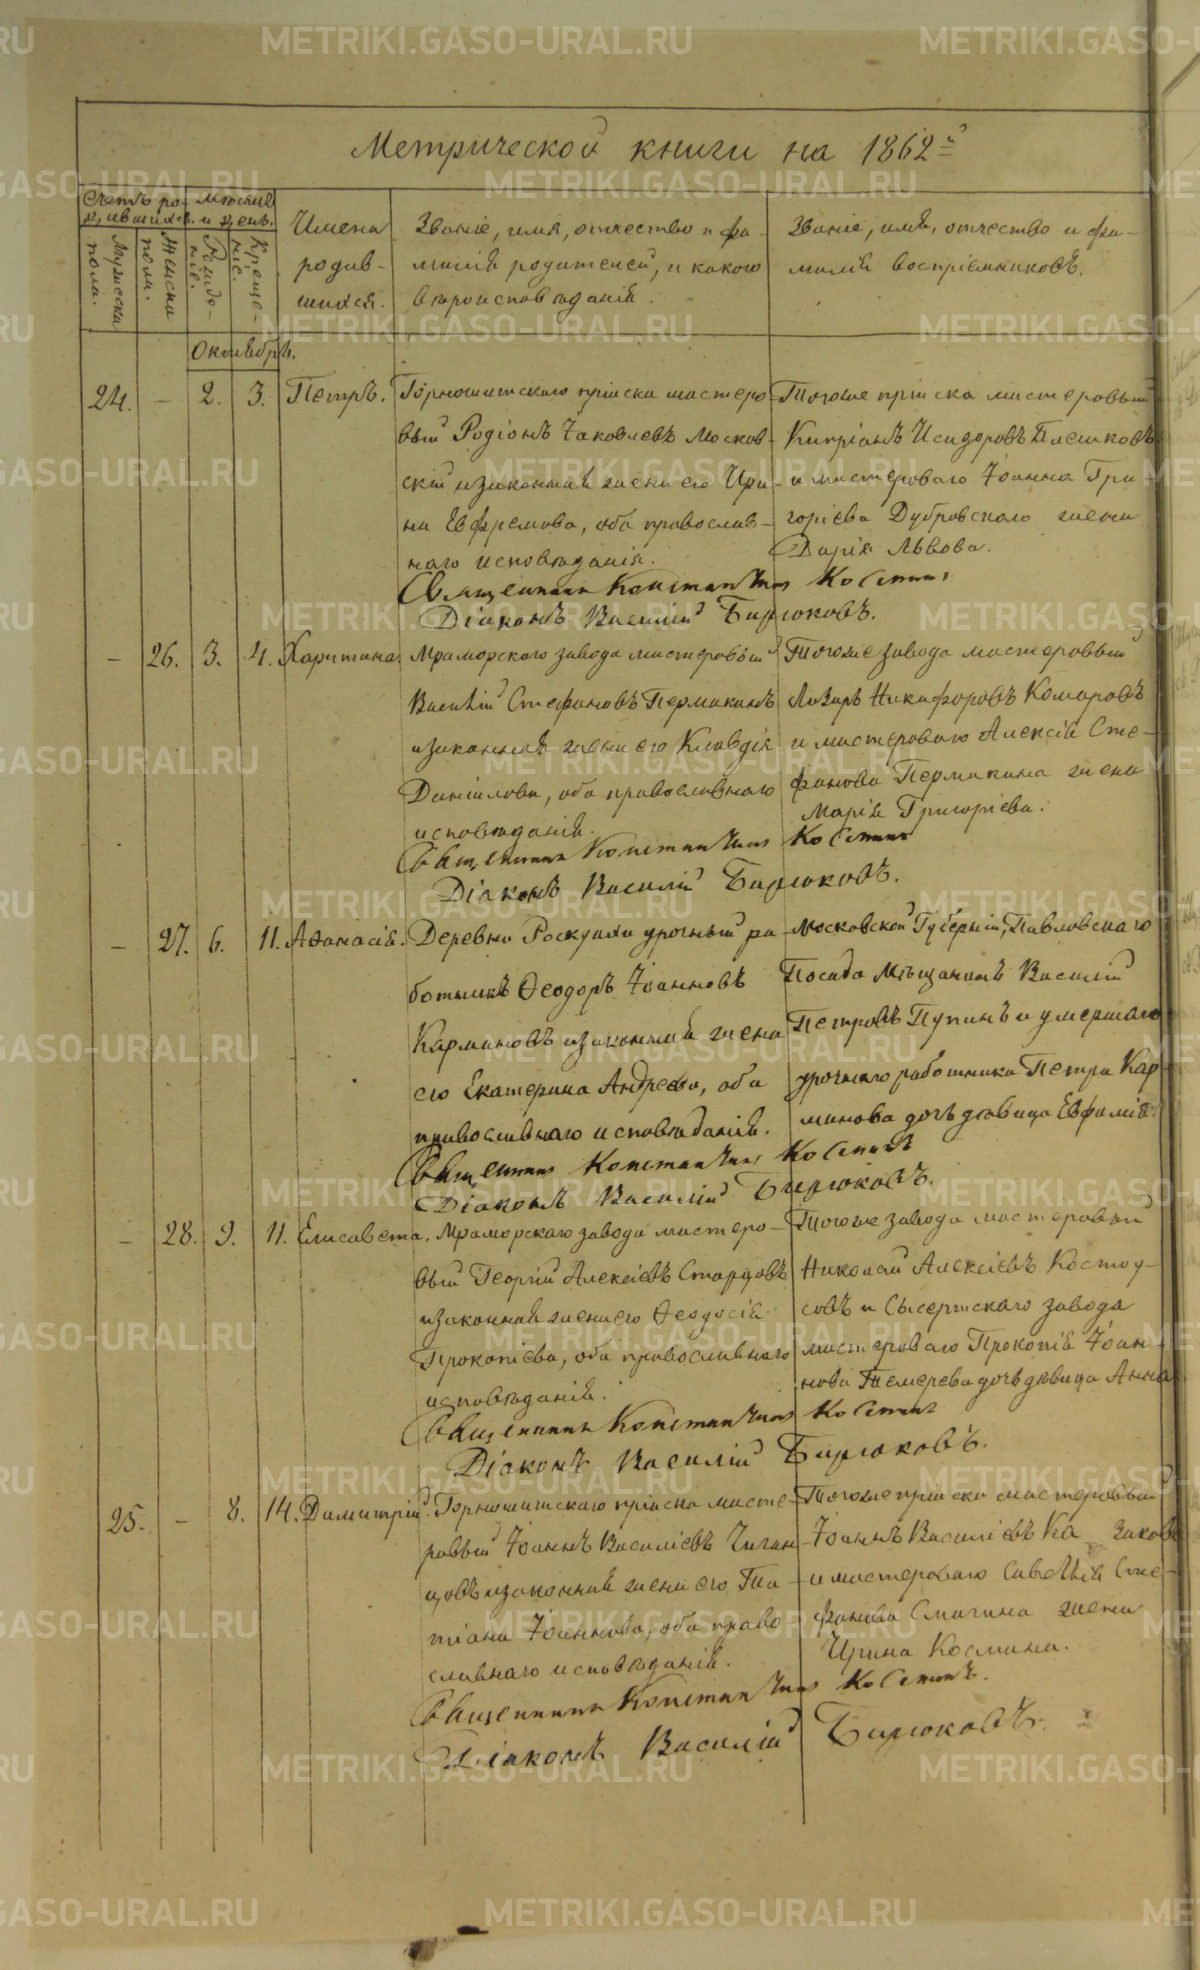 Метрической книги на 1862й
Счетъ ро- Мѣсяцъ
дившихся. и день.
Мужеска пола.
Женска пола.
Рождение.
Крещение.
Имена
родив-
шихся.
Званіе, имя, отчество и фа-
милія родителей, и какого
вѣроисповѣданія.
Званіе, имя, отчество и фа-
милія воспріемниковъ.
Октября.
24. — 2. 3. Петръ.
Горнощитскаго пріиска мастеро
вый Родіонъ Іаковлевъ Москов-
скій и законная жена его Ири-
на Евфремова, оба православ-
наго исповѣданія.
Тогоже пріиска мастеровый
Кипріанъ Исидоровъ Плешковъ
и мастероваго Іоанна Гри
горіева Дубровскаго жена
Дарія Львова.
Священникъ Константинъ Косетинъ
Діаконъ Василій Бирюковъ.
— 26. 3. 4. Харитина
Мраморскаго завода мастеровый
Василій Стефановъ Пермакинъ
и законная жена его Клавдія
Даніилова, оба православнаго
исповѣданія.
Тогоже завода мастеровый
Лазарь Никифоровъ Комаровъ
и мастероваго Алексія Сте-
фанова Пермакина жена
Марія Григоріева.
Священникъ Константинъ Косетинъ
Діаконъ Василій Бирюковъ.
— 27. 6. 11. Аѳанасія.
Деревни Роскухи урочный ра
ботникъ Ѳеодоръ Іоанновъ
Кармановъ и законная жена
его Екатерина Андреева, оба
православнаго исповѣданія.
Московской Губерніи, Павловскаго
Посада Мѣщанинъ Василій
Петровъ Пупинъ и умершаго
урочнаго работника Петра Кар
манова дочь дѣвица Евфимія.
Священникъ Константинъ Косетинъ
Діаконъ Василій Бирюковъ.
— 28. 9. 11. Елисавета.
Мраморскаго завода мастеро-
вый Георгій Алексіевъ Старцовъ
и законная жена его Ѳеодосія
Прокопіева, оба православнаго
исповѣданія.
Тогоже завода мастеровый
Николай Алексіевъ Костоу-
совъ и Сысертскаго завода
мастероваго Прокопія Іоан-
нова Темерева дочь дѣвица Анна
Священникъ Константинъ Косетинъ
Діаконъ Василій Бирюковъ.
25. — 8. 14. Димитрій.
Горнощитскаго пріиска масте-
ровый Іоаннъ Василіевъ Чиган
цовъ и законная жена его Та-
тіана Іоаннова, оба право
славнаго исповѣданія.
Тогоже пріиска мастеровый
Іоаннъ Василіевъ Ка заковъ
и мастероваго Савелія Сте-
фанова Смагина жена
Ирина Космина.
Священникъ Константинъ Косетинъ.
Діаконъ Василій Бирюковъ.
METRIKI.GASO-URAL.RU